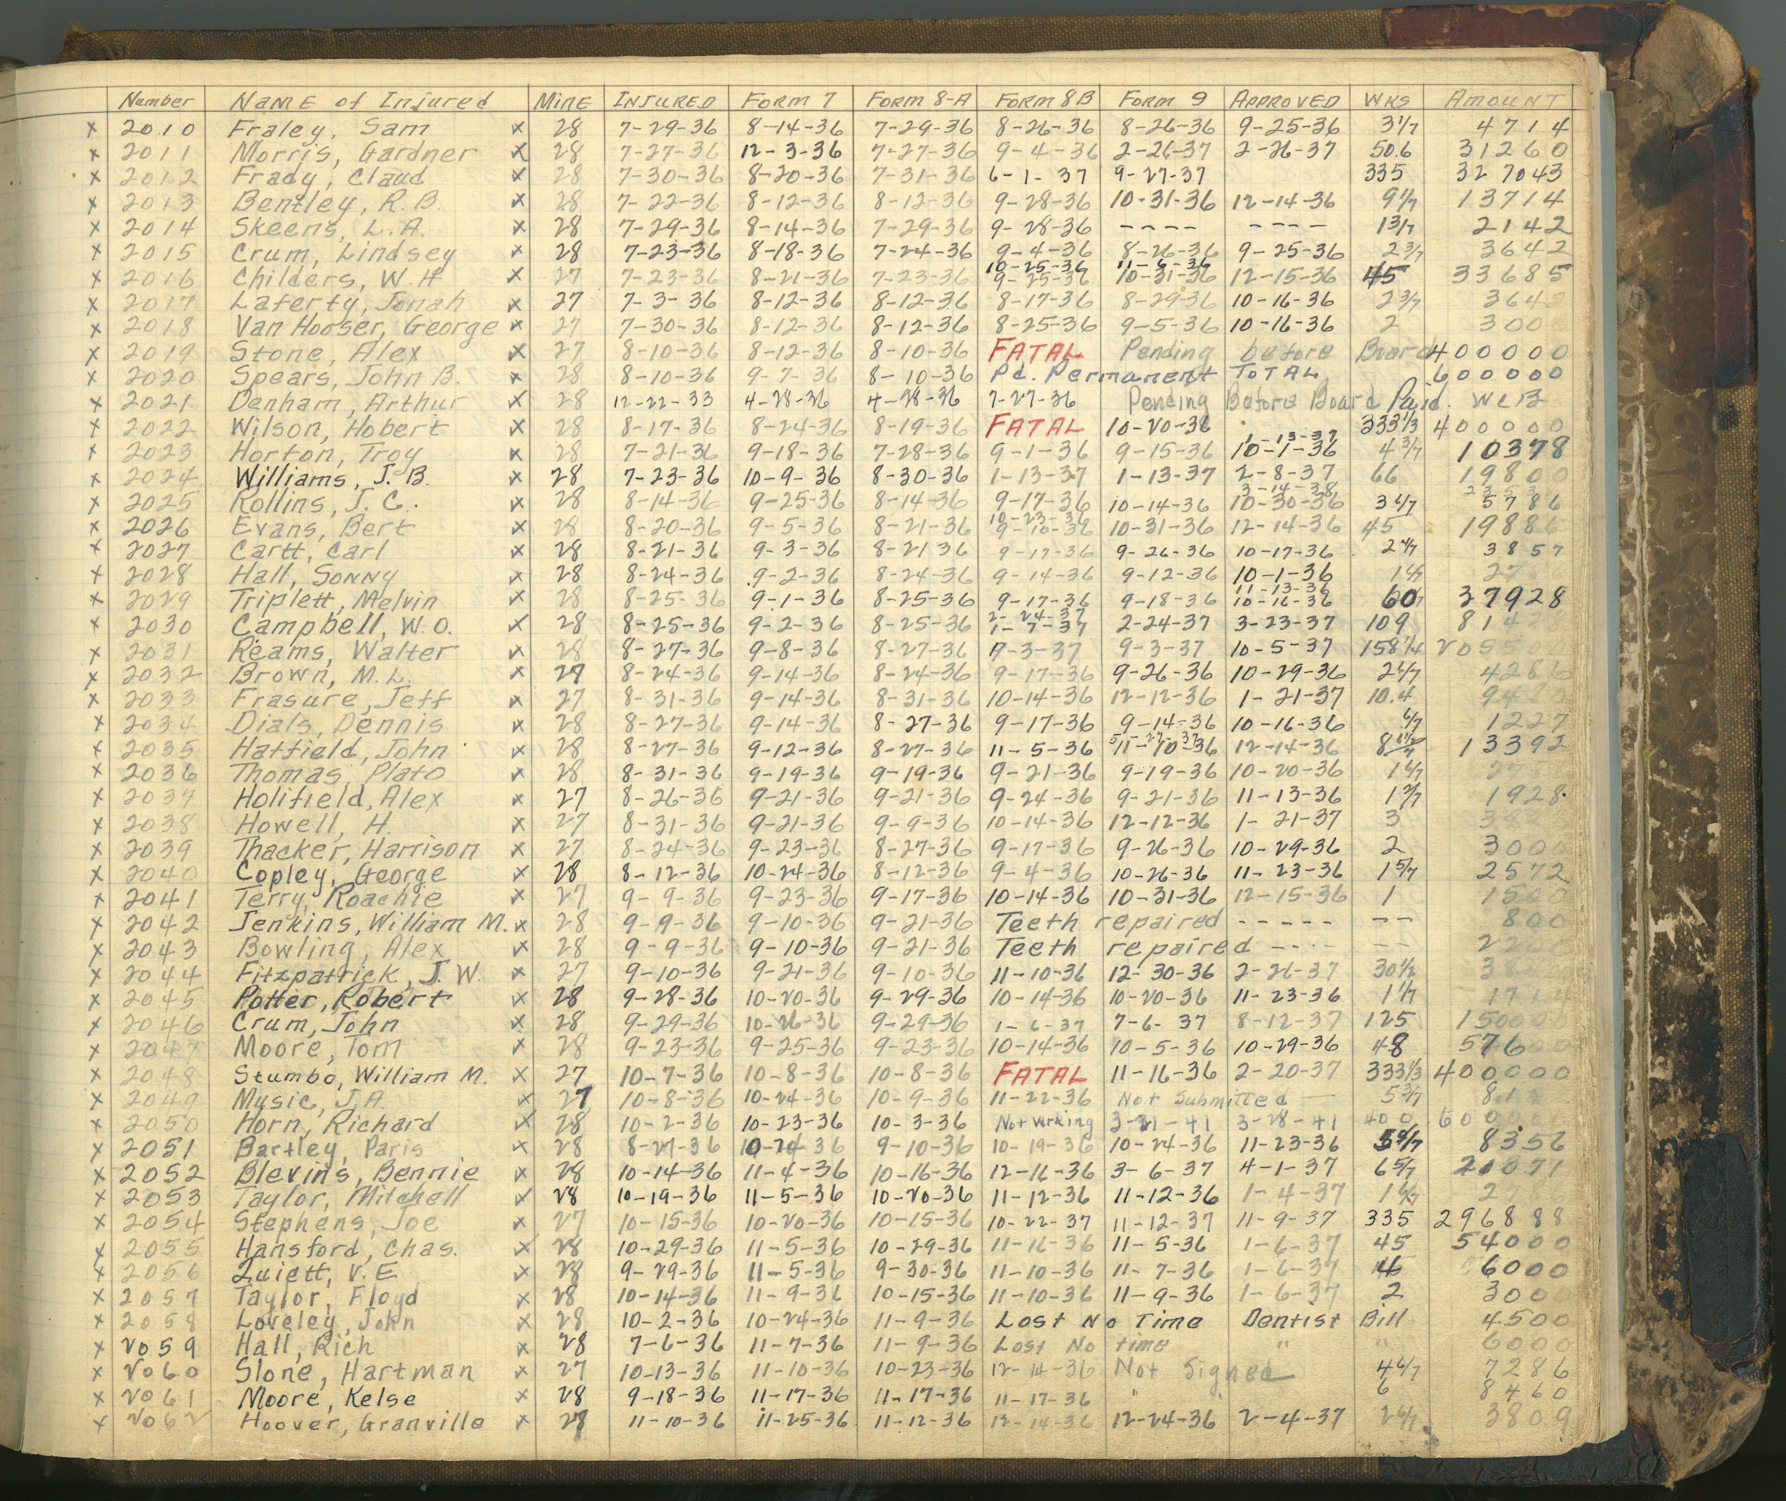 Number Name of Injured Mine Injured Form 7 Form 8-A Form 8B Form 9 Approved Wks Amount
x 2010 Fraley, Sam x 28 7-29-36 8-14-36 7-29-36 8-26-36 8-26-36 9-25-36 3 1/7 4714
x 2011 Morris, Gardner x 28 7-27-36 12-3-36 7-27-36 9-4-36 2-26-37 2-26-37 50.6 31260
x 2012 Frady, Claud x 28 7-30-36 8-20-36 7-31-36 6-1-37 9-27-37 335 327043
x 2013 Bentley, R.B. x 28 7-22-36 8-12-36 8-12-36 9-28-36 10-31-36 12-14-36 9 1/7 13714
x 2014 Skeens, L.A. x 28 7-29-36 8-14-36 7-29-36 9-28-36 ---- ---- 1 3/7 2142
x 2015 Crum, Lindsey x 28 7-23-36 8-18-36 7-24-36 9-4-36 8-26-36 9-25-36 2 3/7 3642
10-25-36 11-6-36
x 2016 Childers, W.H x 27 7-23-36 8-21-36 7-23-36 9-25-36 10-31-36 12-15-36 45 33685
x 2017 Laferty, Jonah x 27 7-3-36 8-12-36 8-12-36 8-17-36 8-29-36 10-16-36 2 3/7 3642
x 2018 Van Hooser, George x 27 7-30-36 8-12-36 8-12-36 8-25-36 9-5-36 10-16-36 2 300
x 2019 Stone, Alex x 27 8-10-36 8-12-36 8-10-36 FATAL Pending before Board 400000
x 2020 Spears, John B. x 28 8-10-36 9-7-36 8-10-36 Pd. Permanent Total 600000
x 2021 Denham, Arthur x 28 12-22-33 4-28-36 4-28-36 7-27-36 Pending Before Board Paid. WCB
x 2022 Wilson, Hobert x 28 8-17-36 8-24-36 8-19-36 FATAL 10-20-36 333 1/3 400000
1-13-37
x 2023 Horton, Troy x 28 7-21-36 9-18-36 7-28-36 9-1-36 9-15-36 10-1-36 4 3/7 10378
x 2024 Williams, J.B. x 28 7-23-36 10-9-36 8-30-36 1-13-37 1-13-37 2-8-37 66 19800
3-14-38
x 2025 Rollins, J.C. x 28 8-14-36 9-25-36 8-14-36 9-17-36 10-14-36 10-30-36 3 6/7 5786
10-23-36
x 2026 Evans, Bert x 28 8-20-36 9-5-36 8-21-36 9-16-36 10-31-36 12-14-36 45 1988
x 2027 Cartt, Carl x 28 8-21-36 9-3-36 8-21 36 9-17-36 9-26-36 10-17-36 2 4/7 3857
x 2028 Hall, Sonny x 28 8-24-36 9-2-36 8-24-36 9-14-36 9-12-36 10-1-36 1 6/7 27
11-13-36
x 2029 Triplett, Melvin x 28 8-25-36 9-1-36 8-25-36 9-17-36 9-18-36 10-16-36 60 37928
2-24-37
x 2030 Campbell, W.O. x 28 8-25-36 9-2-36 8-25-36 1-7-37 2-24-37 3-23-37 109 814
x 2031 Reams, Walter x 28 8-27-36 9-8-36 8-27-36 9-3-37 9-3-37 10-5-37 158 1/4 2055
x 2032 Brown, M.L. x 28 8-24-36 9-14-36 8-24-36 9-17-36 9-26-36 10-29-36 2 6/7 4286
x 2033 Frasure, Jeff x 27 8-31-36 9-14-36 8-31-36 10-14-36 12-12-36 1-21-37 10.4 94
x 2034 Dials, Dennis x 28 8-27-36 9-14-36 8-27-36 9-17-36 9-14-36 10-16-36 6/7 1227
5-27-37
x 2035 Hatfield, John x 28 8-27-36 9-12-36 8-27-36 11-5-36 11-20-36 12-14-36 8 13392
x 2036 Thomas, Plato x 28 8-31-36 9-19-36 9-19-36 9-21-36 9-19-36 10-20-36 1 6/7 27
x 2037 Holifield, Alex x 27 8-26-36 9-21-36 9-21-36 9-24-36 9-21-36 11-13-36 1 2/7 1928
x 2038 Howell, H. x 27 8-31-36 9-21-36 9-9-36 10-14-36 12-12-36 1-21-37 3
x 2039 Thacker, Harrison x 27 8-24-36 9-23-36 8-27-36 9-17-36 9-26-36 10-29-36 2 3000
x 2040 Copley, George x 28 8-12-36 10-24-36 8-12-36 9-4-36 10-26-36 11-23-36 1 5/7 2572
x 2041 Terry, Roachie x 27 9-9-36 9-23-36 9-17-36 10-14-36 10-31-36 12-15-36 1 1500
x 2042 Jenkins, William M. x 28 9-9-36 9-10-36 9-21-36 Teeth repaired ----- -- 800
x 2043 Bowling, Alex x 28 9-9-36 9-10-36 9-21-36 Teeth repaired ---- -- 2200
x 2044 Fitzpatrick, J.W. x 27 9-10-36 9-21-36 9-10-36 11-10-36 12-30-36 2-26-37 30 1/2
x 2045 Potter, Robert x 28 9-28-36 10-20-36 9-29-36 10-14-36 10-20-36 11-23-36 1 1/7 1714
x 2046 Crum, John x 28 9-29-36 10-26-36 9-29-36 1-6-37 7-6-37 8-12-37 125 150000
x 2047 Moore, Tom x 28 9-23-36 9-25-36 9-23-36 10-14-36 10-5-36 10-29-36 48 57600
x 2048 Stumbo, William M. x 27 10-7-36 10-8-36 10-8-36 FATAL 11-16-36 2-20-37 333 1/3 400000
x 2049 Music, J.A. x 27 10-8-36 10-24-36 10-9-36 11-22-36 Not Submitted 5 3/7
x 2050 Horn, Richard x 28 10-2-36 10-23-36 10-3-36 Not working 3-21-41 3-28-41 400 600000
x 2051 Bartley, Paris x 28 8-27-36 10-24-36 9-10-36 10-19-36 10-24-36 11-23-36 5 4/7 8356
x 2052 Blevins, Bennie x 28 10-14-36 11-4-36 10-16-36 12-16-36 3-6-37 4-1-37 6 5/7 20071
x 2053 Taylor, Mitchell x 28 10-19-36 11-5-36 10-20-36 11-12-36 11-12-36 1-4-37 1 6/7
x 2054 Stephens, Joe x 27 10-15-36 10-20-36 10-15-36 10-22-37 11-12-37 11-9-37 335 296888
x 2055 Hansford, Chas. x 28 10-29-36 11-5-36 10-29-36 11-16-36 11-5-36 1-6-37 45 54000
x 2056 Quiett, V.E. x 28 9-29-36 11-5-36 9-30-36 11-10-36 11-7-36 1-6-37 6000
x 2057 Taylor, Floyd x 28 10-14-36 11-9-36 10-15-36 11-10-36 11-9-36 1-6-37 2 3000
x 2058 Loveley, John x 28 10-2-36 10-24-36 11-9-36 Lost No Time Dentist Bill 4500
x 2059 Hall, Rich x 28 7-6-36 11-7-36 11-9-36 Lost No time " " 6000
x 2060 Slone, Hartman x 27 10-13-36 11-10-36 10-23-36 12-14-36 Not Signed 4 6/7 7286
x 2061 Moore, Kelse x 28 9-18-36 11-17-36 11-17-36 11-17-36 " " 6 8460
x 2062 Hoover, Granville x 28 11-10-36 11-25-36 11-12-36 12-14-36 12-24-36 2-4-37 2 6/7 3809